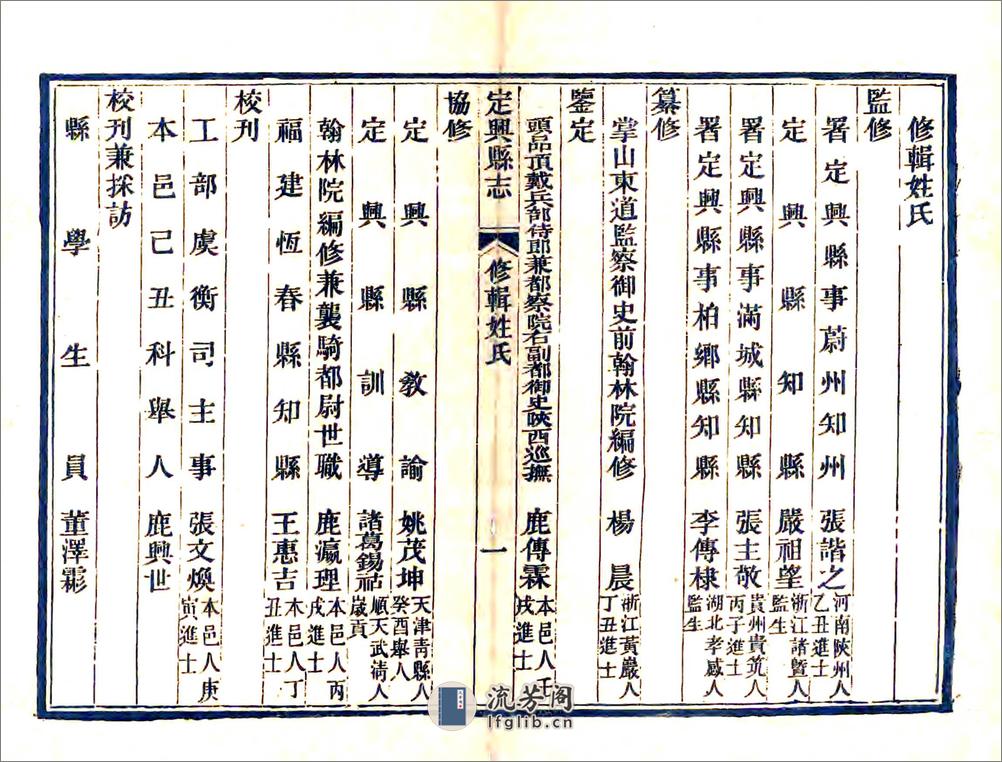 修輯姓氏
監修
署定興縣事蔚州知州 張諧之 河南陝州人乙丑進士
定興縣知縣 嚴祖望 浙江諸暨人監生
署定興縣事滿城縣知縣 張主敬 貴州貴筑人丙子進士
署定興縣事柏鄉縣知縣 李傳棣 湖北孝感人監生
纂修
掌山東道監察御史前翰林院編修 楊晨 浙江黃巖人丁丑進士
鑒定
頭品頂戴兵部侍郎兼都察院右副都御史陝西巡撫 鹿傳霖 本邑人壬戌進士
定興縣志 修輯姓氏 一
協修
定興縣教諭 姚茂坤 天津青縣人癸酉舉人
定興縣訓導 諸葛錫祜 順天武清人歲貢
翰林院編修兼襲騎都尉世職 鹿瀛理 本邑人丙戌進士
福建恆春縣知縣 王惠吉 本邑人丁丑進士
校刊
工部虞衡司主事 張文煥 本邑人庚寅進士
本邑己丑科舉人 鹿興世
校刊兼採訪
縣學生員 董澤霦
流芳阁
lfglib.cn